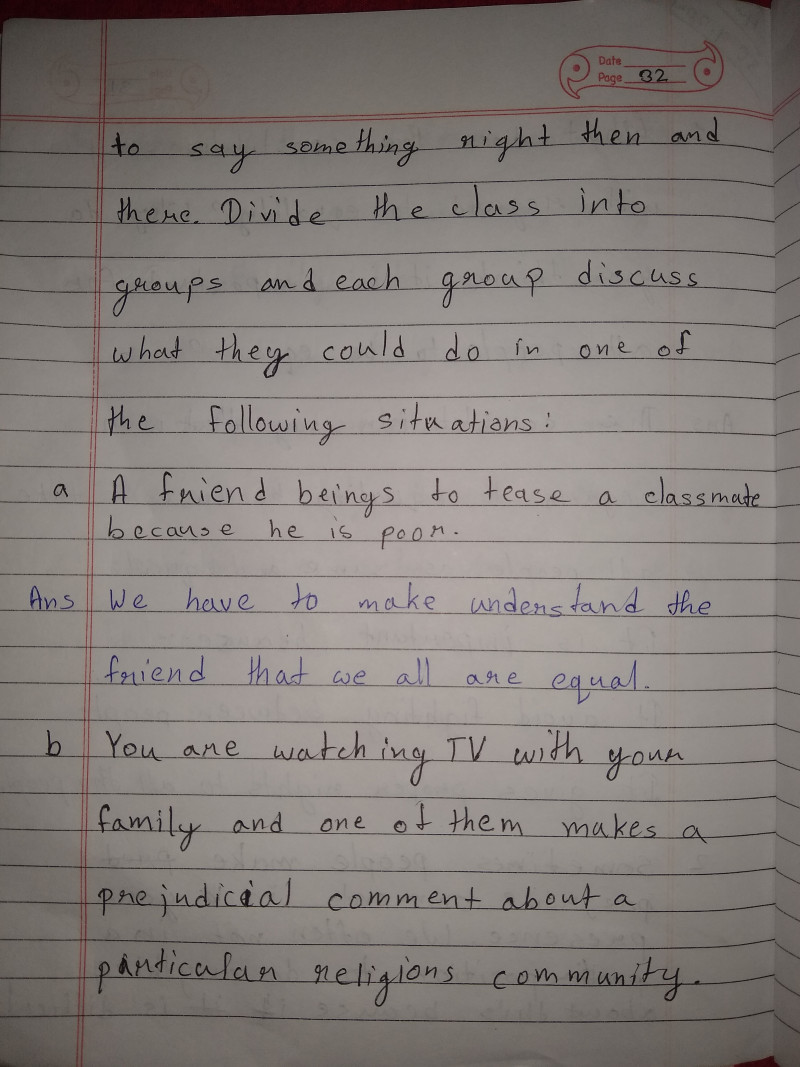 Date
Page 32
to say something right then and
there. Divide the class into
groups and each group discuss
what they could do in one of
the following situations:
a A friend beings to tease a classmate
because he is poor.
Ans We have to make understand the
friend that we all are equal.
b You are watching TV with your
family and one of them makes a
prejudicial comment about a
particular religions community.